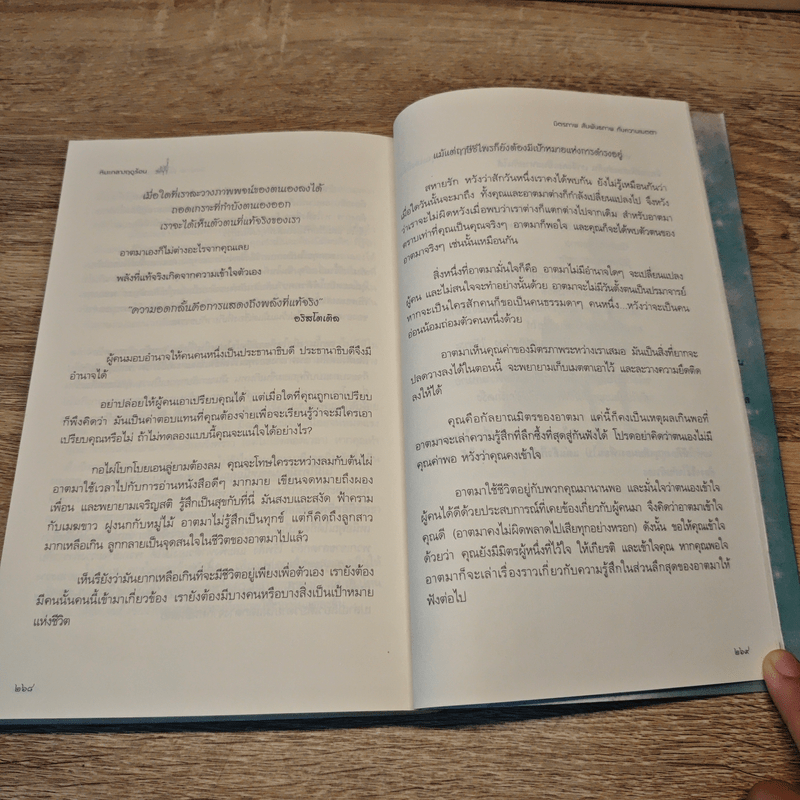 หิมะกลางฤดูร้อน
เมื่อใดที่เราละวางภาพพจน์ของตนเองลงได้
ถอดเกราะที่กำบังตนเองออก
เราจะได้เห็นตัวตนที่แท้จริงของเรา
อาตมาเองก็ไม่ต่างอะไรจากคุณเลย
พลังที่แท้จริงเกิดจากความเข้าใจตัวเอง
"ความอดกลั้นคือการแสดงถึงพลังที่แท้จริง"
อริสโตเติล
ผู้คนมอบอำนาจให้คนคนหนึ่งเป็นประธานาธิบดี ประธานาธิบดีจึงมี
อำนาจได้
อย่าปล่อยให้ผู้คนเอาเปรียบคุณได้ แต่เมื่อใดที่คุณถูกเอาเปรียบ
ก็พึงคิดว่า มันเป็นค่าตอบแทนที่คุณต้องจ่ายเพื่อจะเรียนรู้ว่าจะมีใครเอา
เปรียบคุณหรือไม่ ถ้าไม่ทดลองแบบนี้คุณจะแน่ใจได้อย่างไร?
กอไผ่โบกโบยเอนลู่ยามต้องลม คุณจะโทษใครระหว่างลมกับต้นไผ่
อาตมาใช้เวลาไปกับการอ่านหนังสือดีๆ มากมาย เขียนจดหมายถึงผอง
เพื่อน และพยายามเจริญสติ รู้สึกเป็นสุขกับที่นี่ มันสงบและสงัด ฟ้าคราม
กับเมฆขาว ฝูงนกกับหมู่ไม้ อาตมาไม่รู้สึกเป็นทุกข์ แต่ก็คิดถึงลูกสาว
มากเหลือเกิน ลูกกลายเป็นจุดสนใจในชีวิตของอาตมาไปแล้ว
เห็นรึยังว่ามันยากเหลือเกินที่จะมีชีวิตอยู่เพียงเพื่อตัวเอง เรายังต้อง
มีคนนั้นคนนี้เข้ามาเกี่ยวข้อง เรายังต้องมีบางคนหรือบางสิ่งเป็นเป้าหมาย
แห่งชีวิต
๒๖๘
มิตรภาพ สัมพันธภาพ กับความเมตตา
แม้แต่ฤๅษีชีไพรก็ยังต้องมีเป้าหมายแห่งการดำรงอยู่
สหายรัก หวังว่าสักวันหนึ่งเราคงได้พบกัน ยังไม่รู้เหมือนกันว่า
เมื่อใดวันนั้นจะมาถึง ทั้งคุณและอาตมาต่างก็กำลังเปลี่ยนแปลงไป จึงหวัง
ว่าเราจะไม่ผิดหวังเมื่อพบว่าเราต่างก็แตกต่างไปจากเดิม สำหรับอาตมา
ตราบเท่าที่คุณเป็นคุณจริงๆ อาตมาก็พอใจ และคุณก็จะได้พบตัวตนของ
อาตมาจริงๆ เช่นนั้นเหมือนกัน
สิ่งหนึ่งที่อาตมามั่นใจก็คือ อาตมาไม่มีอำนาจใดๆ จะเปลี่ยนแปลง
ผู้คน และไม่สนใจจะทำอย่างนั้นด้วย อาตมาจะไม่มีวันตั้งตนเป็นปรมาจารย์
หากจะเป็นใครสักคนก็ขอเป็นคนธรรมดาๆ คนหนึ่ง...หวังว่าจะเป็นคน
อ่อนน้อมถ่อมตัวคนหนึ่งด้วย
อาตมาเห็นคุณค่าของมิตรภาพระหว่างเราเสมอ มันเป็นสิ่งที่ยากจะ
ปลดวางลงได้ในตอนนี้ จะพยายามเก็บเมตตาเอาไว้ และละวางความยึดติด
ลงให้ได้
คุณคือกัลยาณมิตรของอาตมา แค่นี้ก็คงเป็นเหตุผลเกินพอที่
อาตมาจะเล่าความรู้สึกที่ลึกซึ้งที่สุดสู่กันฟังได้ โปรดอย่าคิดว่าตนเองไม่มี
คุณค่าพอ หวังว่าคุณคงเข้าใจ
อาตมาใช้ชีวิตอยู่กับพวกคุณมานานพอ และมั่นใจว่าตนเองเข้าใจ
ผู้คนได้ดีด้วยประสบการณ์ที่เคยข้องเกี่ยวกับผู้คนมา จึงคิดว่าอาตมาเข้าใจ
คุณดี (อาตมาคงไม่ผิดพลาดไปเสียทุกอย่างหรอก) ดังนั้น ขอให้คุณเข้าใจ
ด้วยว่า คุณยังมีมิตรผู้หนึ่งที่ไว้ใจ ให้เกียรติ และเข้าใจคุณ หากคุณพอใจ
อาตมาก็จะเล่าเรื่องราวเกี่ยวกับความรู้สึกในส่วนลึกสุดของอาตมาให้
ฟังต่อไป
๒๖๙